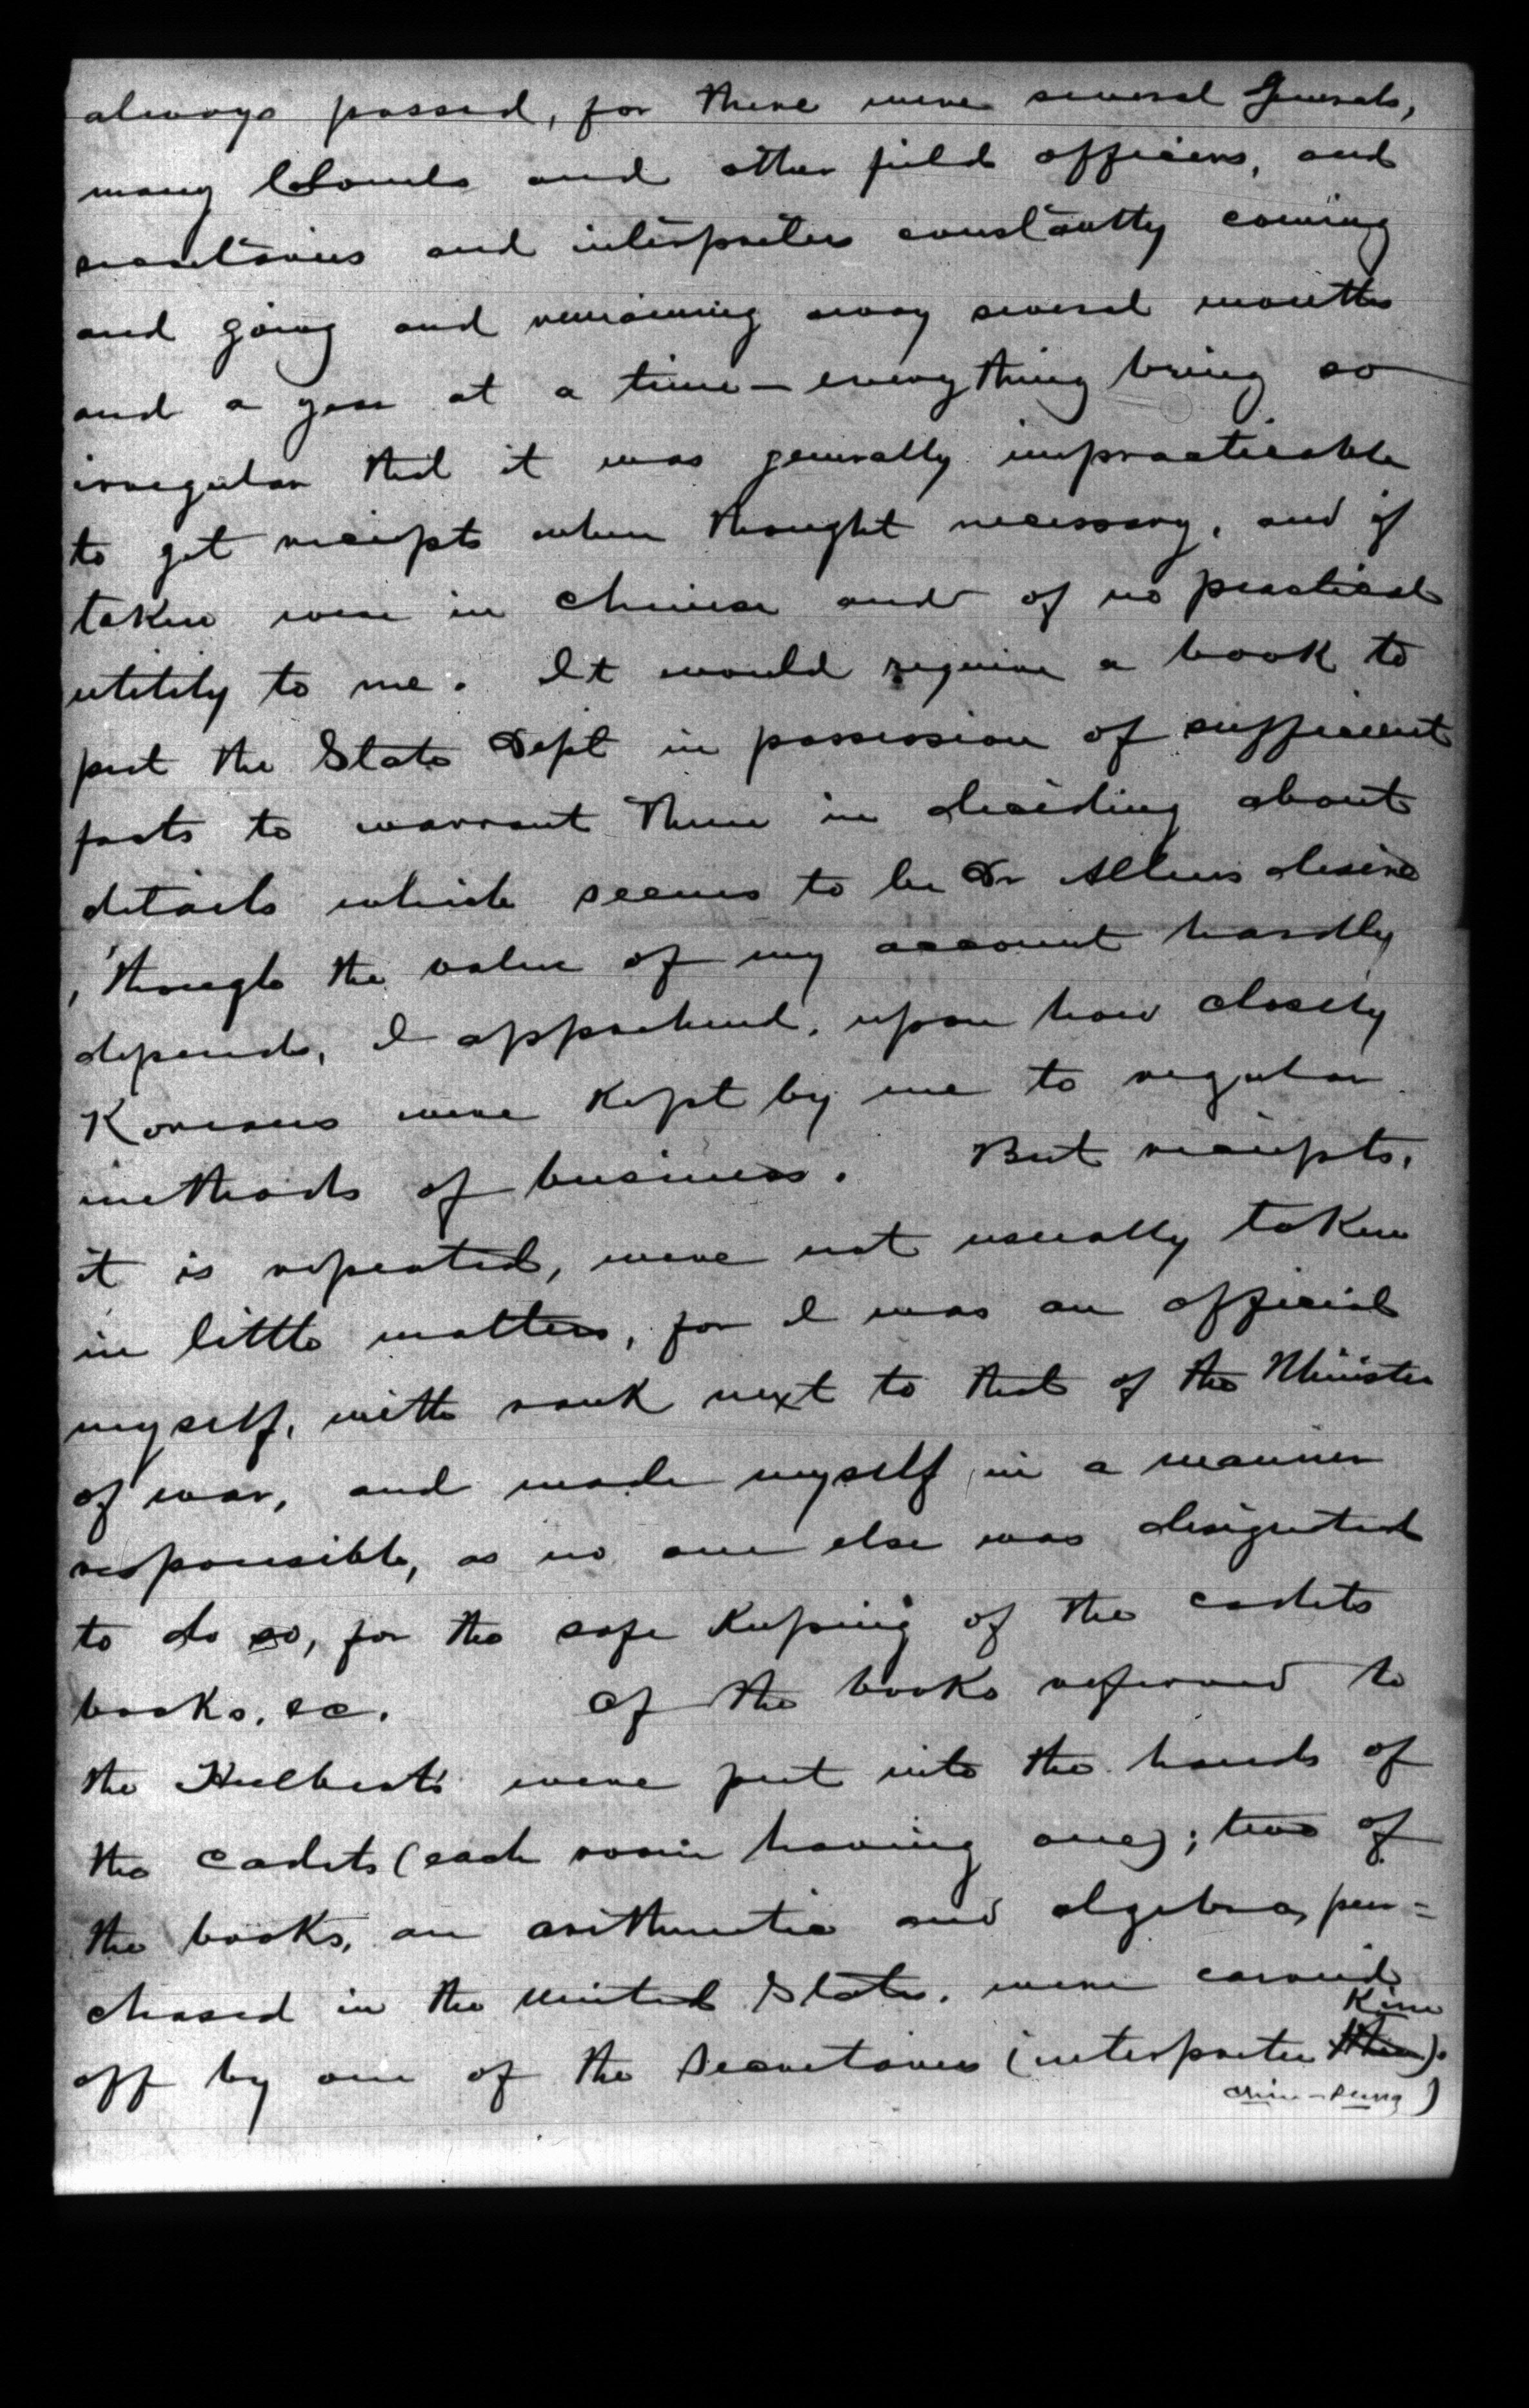 always passed, for there were several Generals,
many Colonels and other field officers, and
secretaries and interpreters constantly coming
and going and remaining away several months
and a year at a time — everything being so
irregular that it was generally impracticable
to get receipts when thought necessary, and if
taken were in Chinese and of no practical
utility to me. It would require a book to
put the State Dept in possession of sufficient
facts to warrant them in deciding about
details which seems to be Dr Allens desire
, though the value of my account hardly
depends, I apprehend, upon how closely
Koreans were kept by me to regular
methods of business. But receipts,
it is repeated, were not usually taken
in little matters, for I was an official
myself, with rank next to that of the Minister
of war, and made myself, in a manner
responsible, as no one else was designated
to do so, for the safe keeping of the cadets
books, &c. Of the books referred to
the Hulberts were put into the hands of
the cadets (each room having one); two of
the books, an arithmetic and algebra, pur=
chased in the United States, were carried
off by one of the Secretaries (interpreter Kim
)